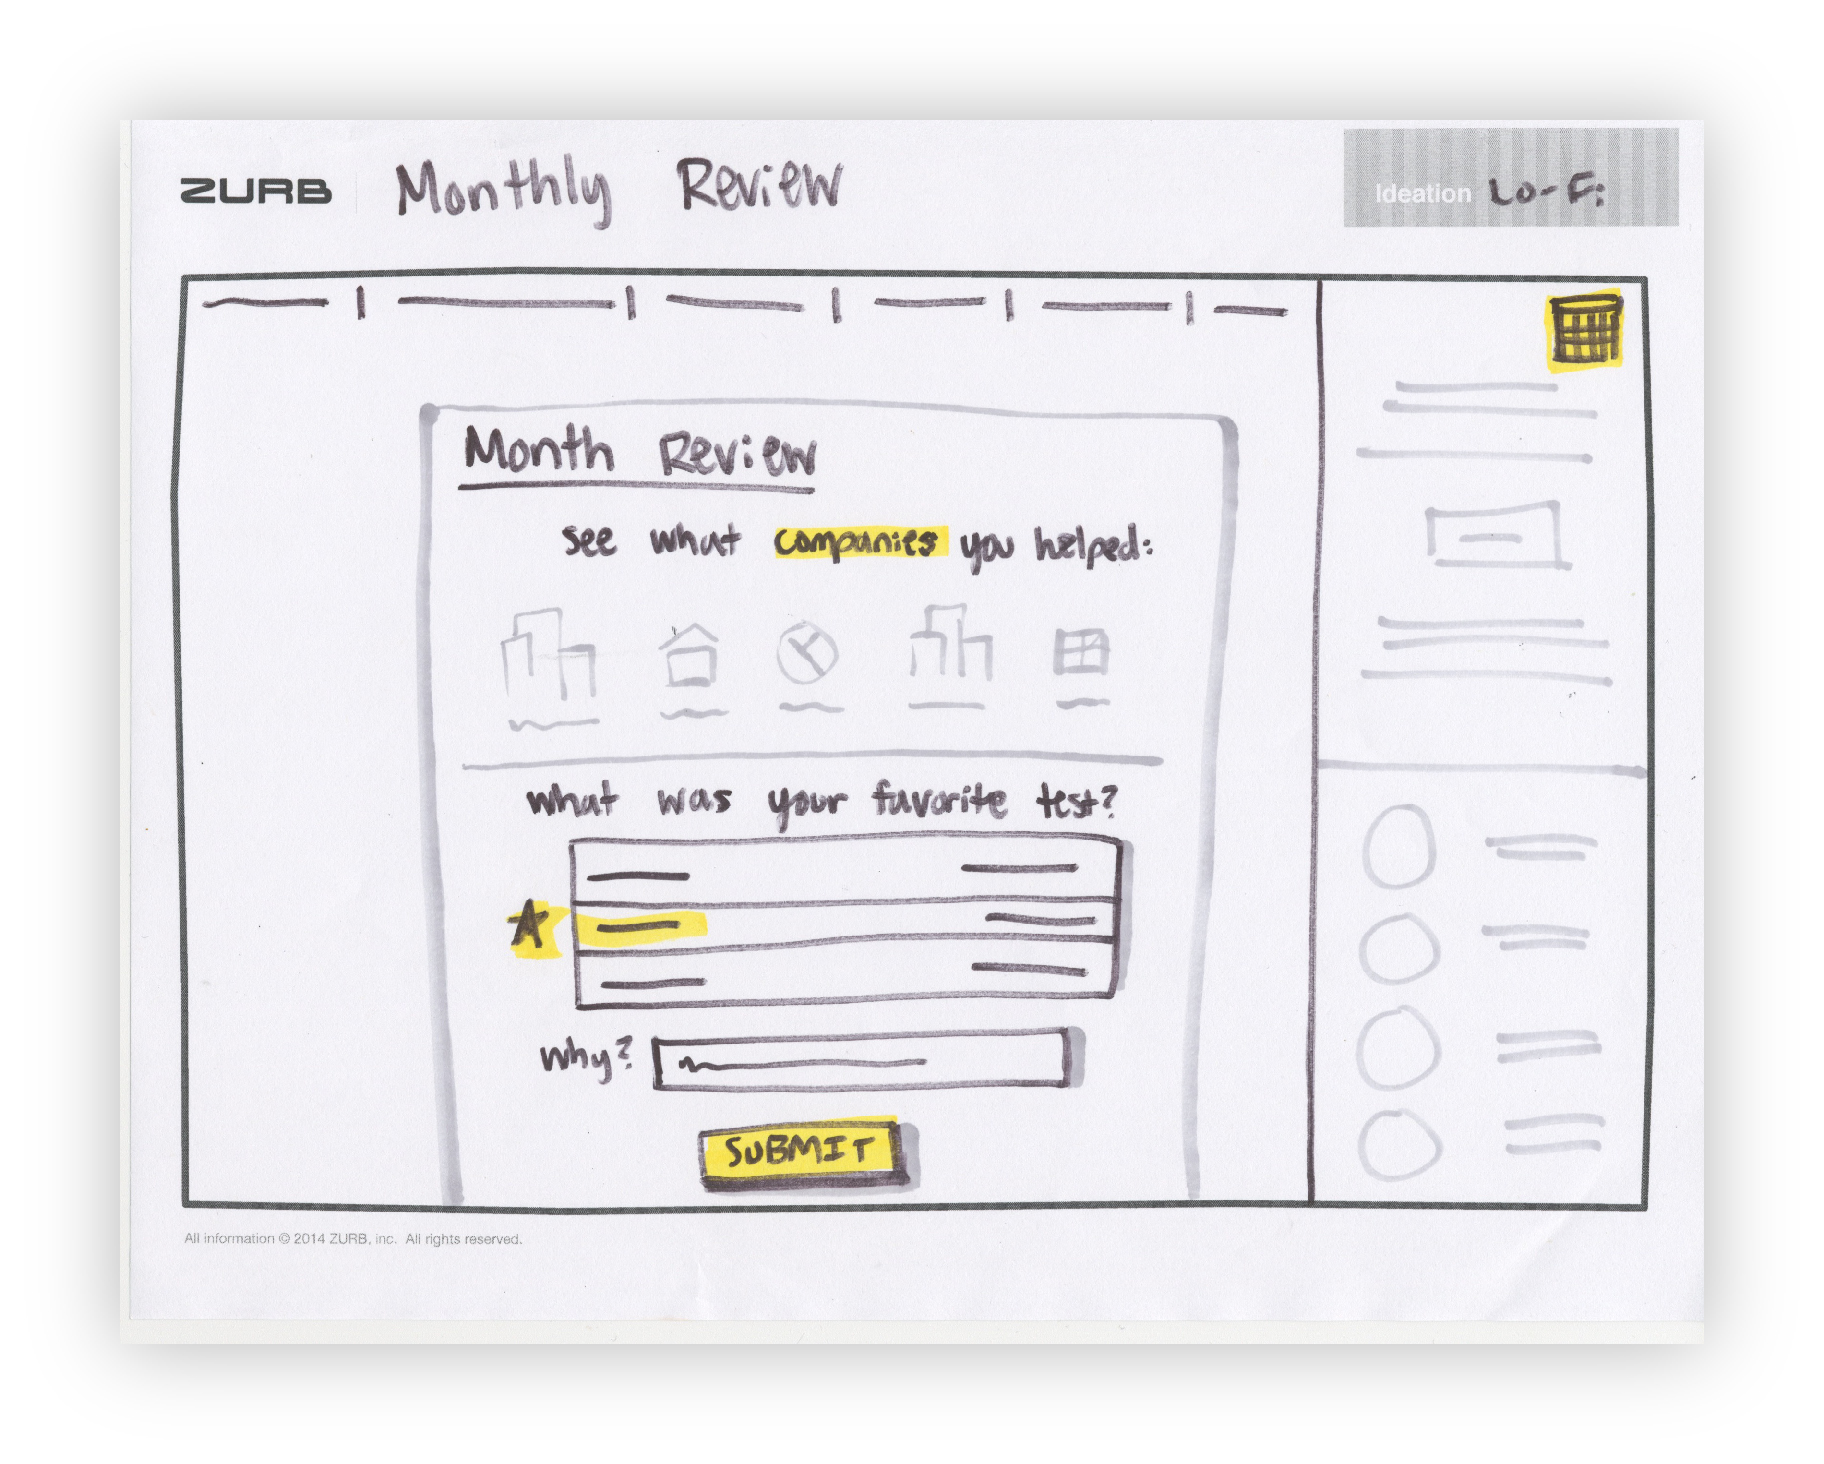 ZURB Monthly Review
Ideation Lo-Fi
Month Review
see what companies you helped:
what was your favorite test?
why?
SUBMIT
All information © 2014 ZURB, inc. All rights reserved.